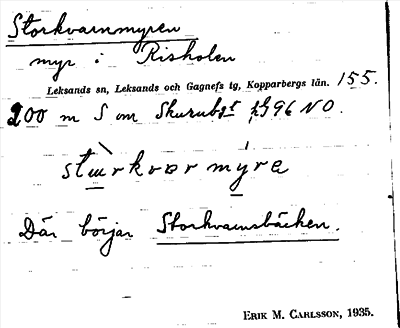 Storkvarnmyren
myr i Risholen
Leksands sn, Leksands och Gagnefs tg, Kopparbergs län. 155.
200 m S om 96 NO.
Där börjar Storkvarnsbäcken.
ERIK M. CARLSSON, 1935.